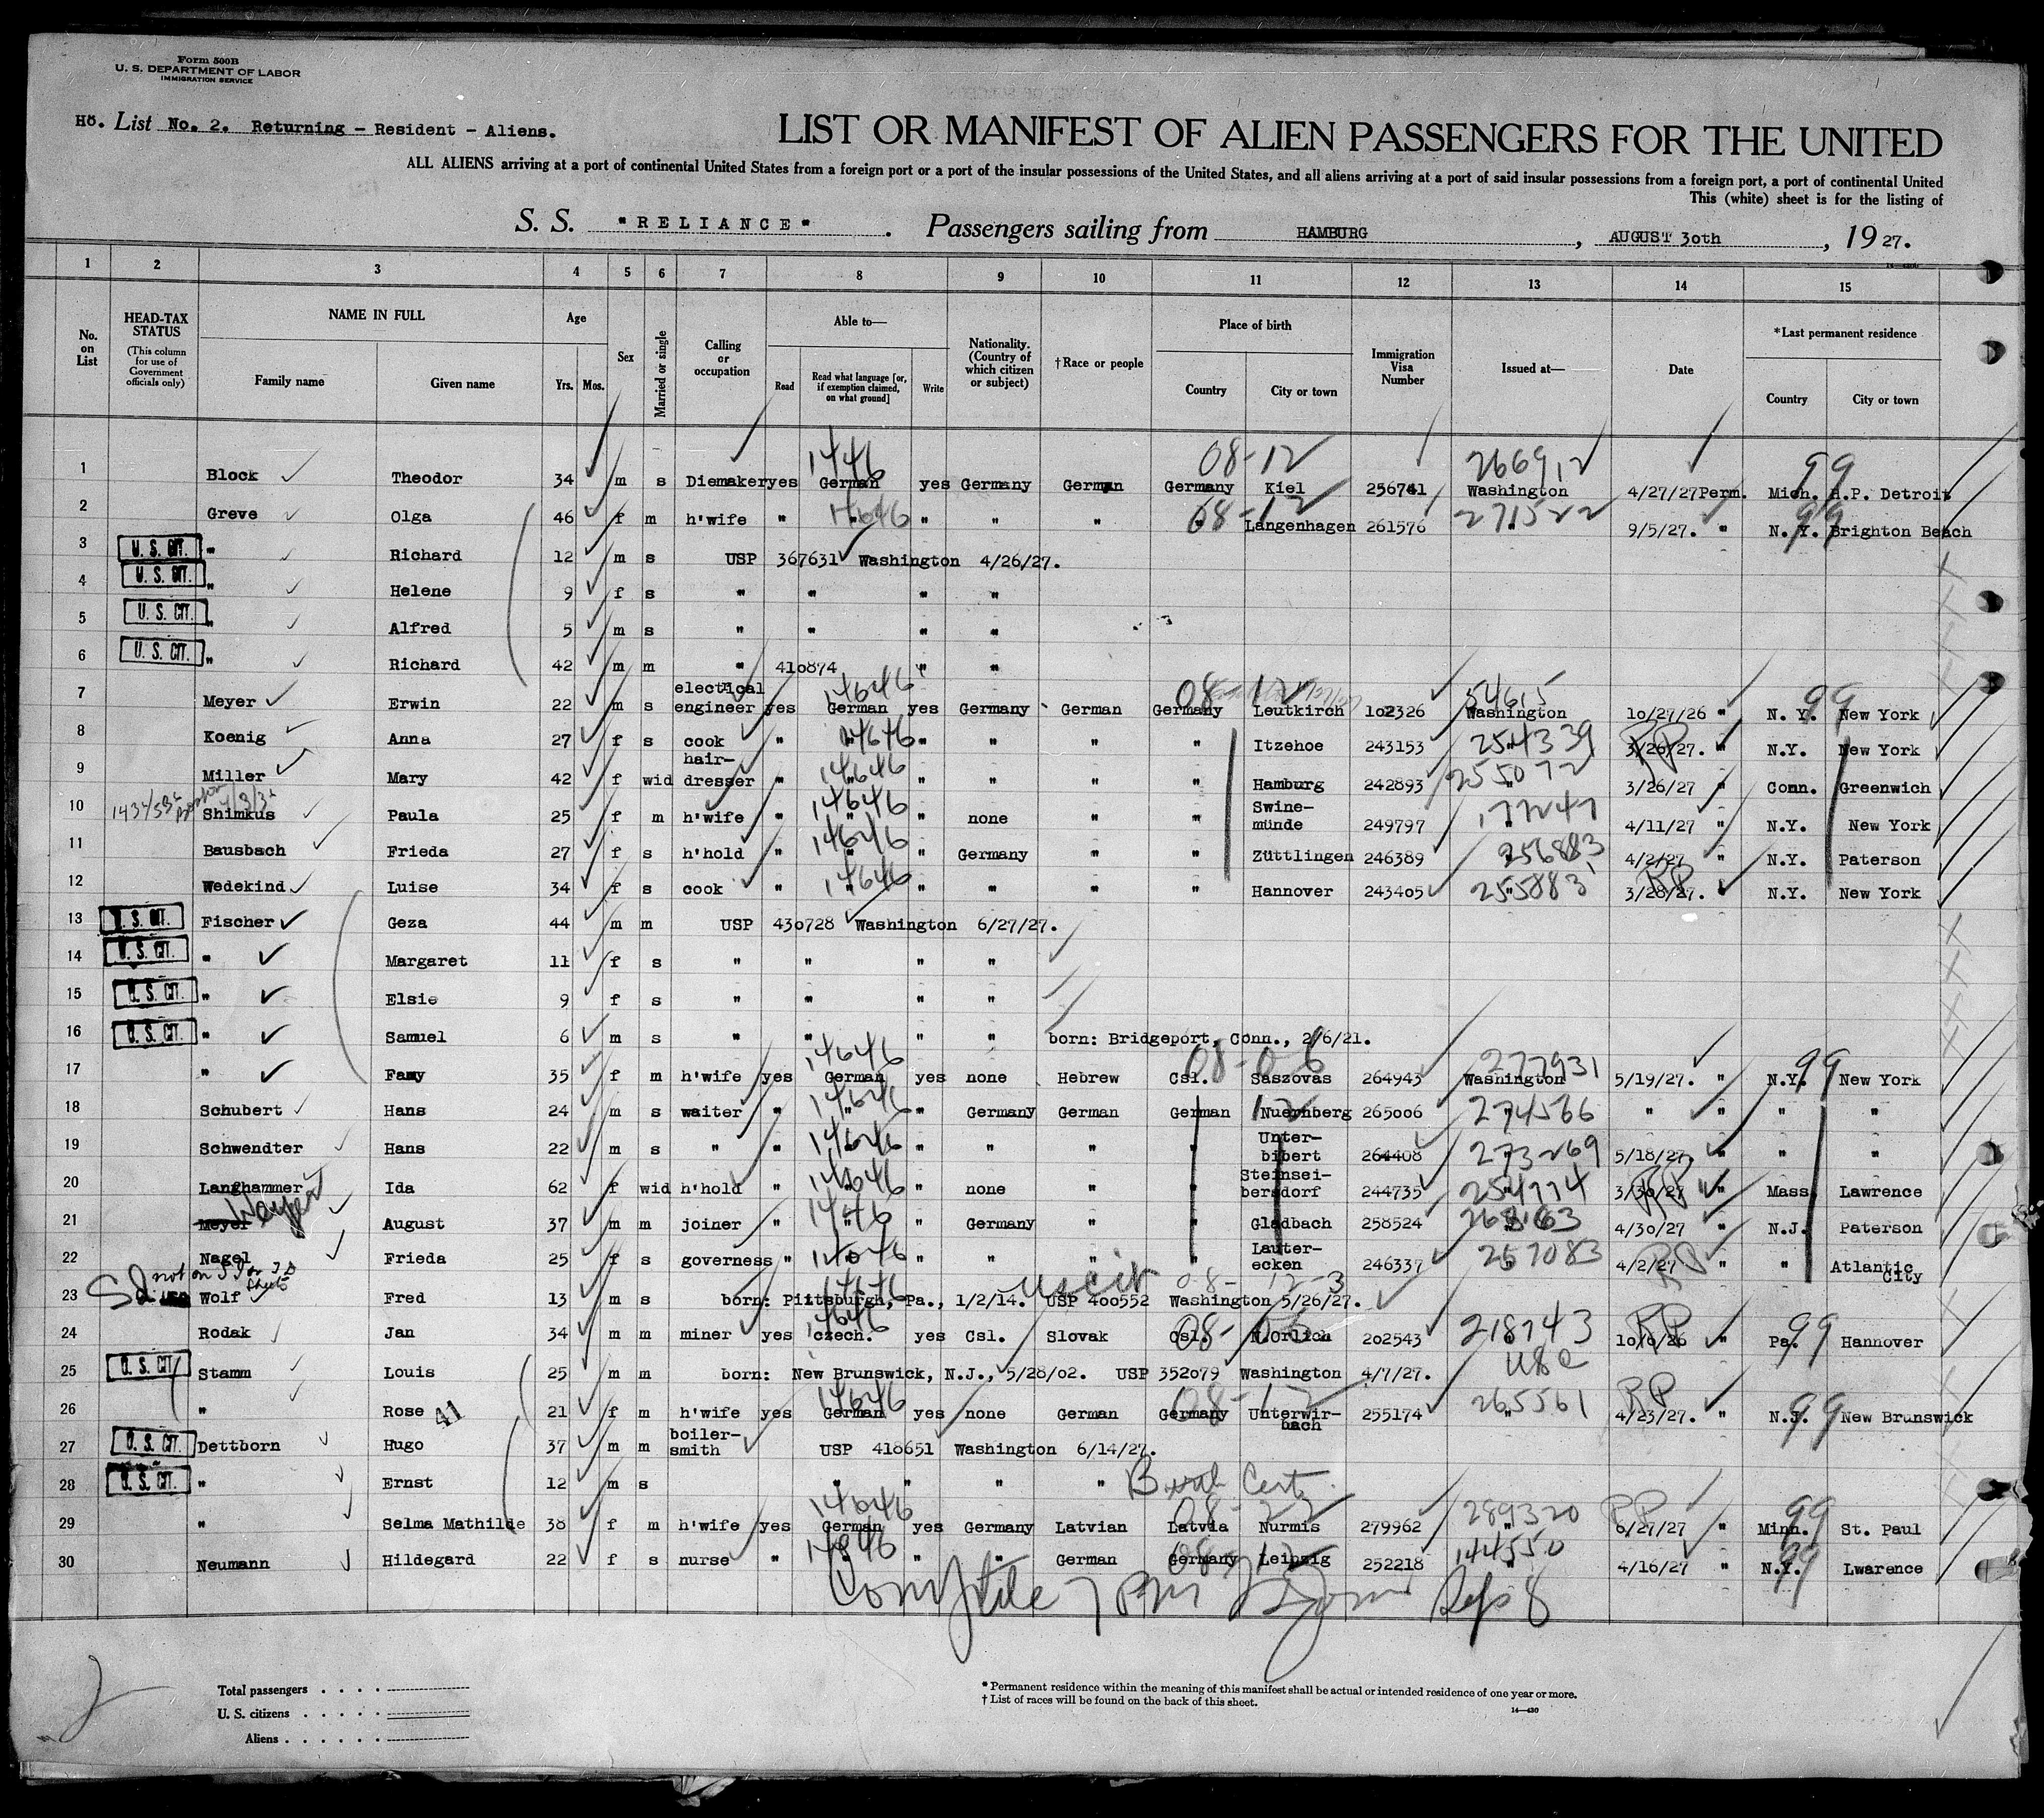 Form 500B
U. S. DEPARTMENT OF LABOR
IMMIGRATION SERVICE
Hö. List No. 2. Returning - Resident - Aliens.
LIST OR MANIFEST OF ALIEN PASSENGERS FOR THE UNITED
ALL ALIENS arriving at a port of continental United States from a foreign port or a port of the insular possessions of the United States, and all aliens arriving at a port of said insular possessions from a foreign port, a port of continental United
This (white) sheet is for the listing of
S. S. "RELIANCE". Passengers sailing from HAMBURG, AUGUST 30th, 1927.
1 2 3 4 5 6 7 8 9 10 11 12 13 14 15
No. on List
HEAD-TAX STATUS (This column for use of Government officials only)
NAME IN FULL
Family name Given name
Age Yrs. Mos.
Sex
Married or single
Calling or occupation
Able to—
Read
Read what language [or, if exemption claimed, on what ground]
Write
Nationality. (Country of which citizen or subject)
†Race or people
Place of birth
Country City or town
Immigration Visa Number
Issued at—
Date
*Last permanent residence
Country City or town
1 Block Theodor 34 m s Diemaker yes German yes Germany German Germany Kiel 256741 Washington 4/27/27 Perm. Mich. H.P. Detroit
1446 08-12 266912 99
2 Greve Olga 46 f m h'wife " " " " " " Langenhagen 261576 " 9/5/27. " N. Y. Brighton Beach
08-12 271522 99
3 U. S. CIT. " Richard 12 m s USP 367631 Washington 4/26/27.
4 U. S. CIT. " Helene 9 f s " " " "
5 U. S. CIT. " Alfred 5 m s " " " "
6 U. S. CIT. " Richard 42 m m " 410874 " "
7 Meyer Erwin 22 m s electical engineer yes German yes Germany German Germany Leutkirch 102326 Washington 10/27/26 " N. Y. New York
14646 08-12 54615 99
8 Koenig Anna 27 f s cook " " " " " " Itzehoe 243153 " 3/26/27. " N.Y. New York
14646 254339 RP
9 Miller Mary 42 f wid hair-dresser " " " " " " Hamburg 242893 " 3/26/27 " Conn. Greenwich
14646 255072
10 Shimkus Paula 25 f m h'wife " " " none " " Swine-münde 249797 " 4/11/27 " N.Y. New York
14646 177247
11 Bausbach Frieda 27 f s h'hold " " " Germany " " Züttlingen 246389 " 4/2/27 " N.Y. Paterson
14646 256883
12 Wedekind Luise 34 f s cook " " " " " " Hannover 243405 " 3/28/27. " N.Y. New York
14646 255883 RP
13 U. S. CIT. Fischer Geza 44 m m USP 430728 Washington 6/27/27.
14 U. S. CIT. " Margaret 11 f s " " " "
15 U. S. CIT. " Elsie 9 f s " " " "
16 U. S. CIT. " Samuel 6 m s " " " " born: Bridgeport, Conn., 2/6/21.
17 " Fany 35 f m h'wife yes German yes none Hebrew Csl. Saszovas 264943 Washington 5/19/27. " N.Y. New York
14646 08-06 277931 99
18 Schubert Hans 24 m s waiter " " " Germany German German Nuernberg 265006 " " " " "
14646 12 274566
19 Schwendter Hans 22 m s " " " " " " " Unter-bibert 264408 " 5/18/27. " " "
14646 273269
20 Langhammer Ida 62 f wid h'hold " " " none " " Steinsei-bersdorf 244735 " 3/30/27 " Mass. Lawrence
14646 254774 RP
21 Meyer August 37 m m joiner " " " Germany " " Gladbach 258524 " 4/30/27 " N.J. Paterson
1446 268163
22 Nagel Frieda 25 f s governess " " " " " " Lauter-ecken 246337 " 4/2/27 " " Atlantic City
14646 257083 RP
not on
23 Wolf Fred 13 m s born: Pittsburgh, Pa., 1/2/14. USP 400552 Washington 5/26/27.
14646 us cit 08-12-3
24 Rodak Jan 34 m m miner yes czech. yes Csl. Slovak Csl. N.Orlich 202543 " 10/6/26 " Pa. Hannover
14646 218743 RP 99
25 U. S. CIT. Stamm Louis 25 m m born: New Brunswick, N.J., 5/28/02. USP 352079 Washington 4/7/27.
26 " Rose 41 21 f m h'wife yes German yes none German Germany Unterwir-bach 255174 " 4/23/27. " N.J. New Brunswick
14646 08-12 265561 RP 99
27 U. S. CIT. Dettborn Hugo 37 m m boiler-smith USP 418651 Washington 6/14/27.
28 U. S. CIT. " Ernst 12 m s " " " " Birth Cert.
29 " Selma Mathilde 38 f m h'wife yes German yes Germany Latvian Latvia Nurmis 279962 " 6/27/27 " Minn. St. Paul
14646 08-22 289320 RP 99
30 Neumann Hildegard 22 f s nurse " " " " German Germany Leipzig 252218 " 4/16/27 " N.Y. Lwarence
08-12 144550 99
Total passengers
U. S. citizens
Aliens
* Permanent residence within the meaning of this manifest shall be actual or intended residence of one year or more.
† List of races will be found on the back of this sheet.
14—430